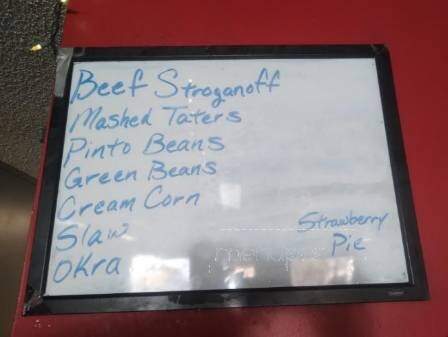 Beef Stroganoff
Mashed Taters
Pinto Beans
Green Beans
Cream Corn
Slaw
Okra
Strawberry
Pie